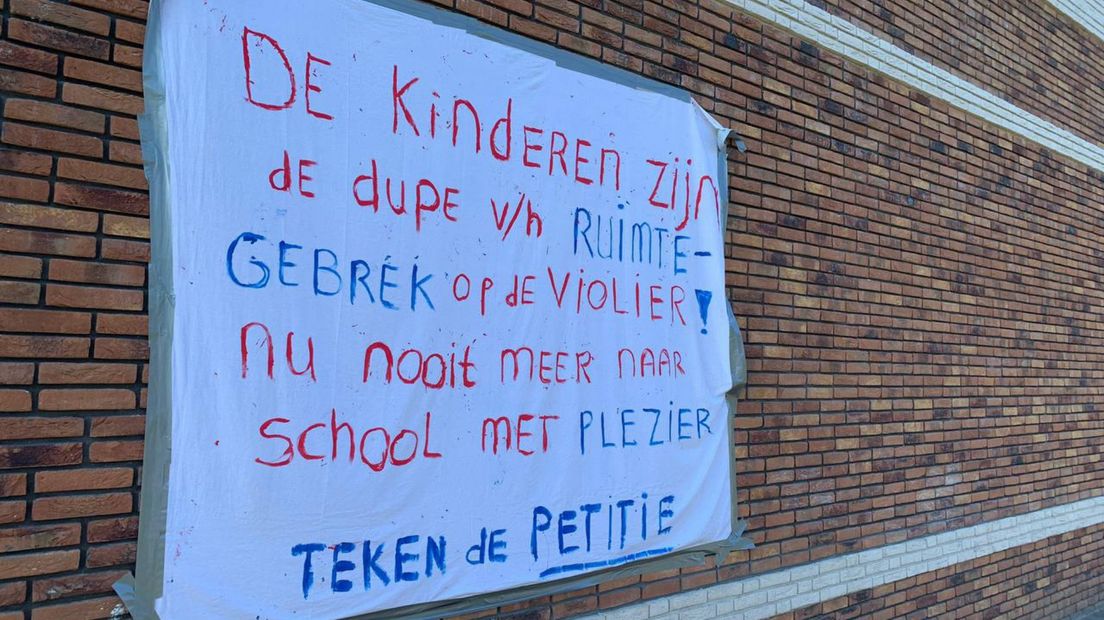 DE KiNDEREN ZijN
dE dUPE v/h RUiMTE-
GEBREK OP dE ViOLiER!
NU NOOiT MEER NAAR
SCHOOL MET PLEZiER
TEKEN dE PETiTiE